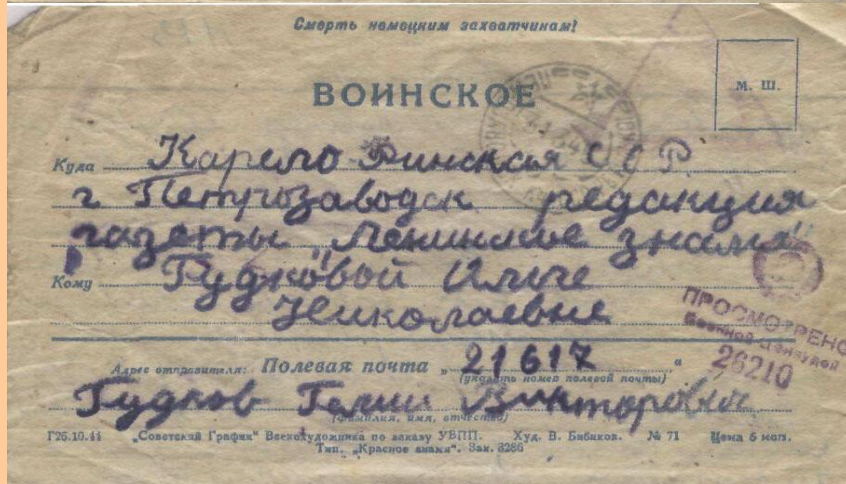 Смерть немецким захватчикам!
ВОИНСКОЕ
М. Ш.
Куда Карело Финская ССР
г Петрозаводск редакция
газеты „Ленинское знамя"
Кому Гудковой
Николаевне
ПРОСМОТРЕНО
Военной Цензурой
26210
Адрес отправителя: Полевая почта „ 21617 "
(указать номер полевой почты)
Гудков Викторович
(фамилия, имя, отчество)
Г26.10.41 „Советский График" Всекохудожника по заказу УВПП. Худ. В. Бибиков. № 71 Цена 5 коп.
Тип. „Красное знамя". Зак. 3286